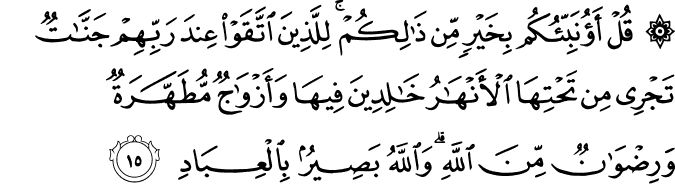 ۞ قُلۡ أَؤُنَبِّئُكُم بِخَيۡرٖ مِّن ذَٰلِكُمۡۖ لِلَّذِينَ ٱتَّقَوۡاْ عِندَ رَبِّهِمۡ جَنَّٰتٞ
تَجۡرِي مِن تَحۡتِهَا ٱلۡأَنۡهَٰرُ خَٰلِدِينَ فِيهَا وَأَزۡوَٰجٞ مُّطَهَّرَةٞ
وَرِضۡوَٰنٞ مِّنَ ٱللَّهِۗ وَٱللَّهُ بَصِيرُۢ بِٱلۡعِبَادِ ١٥